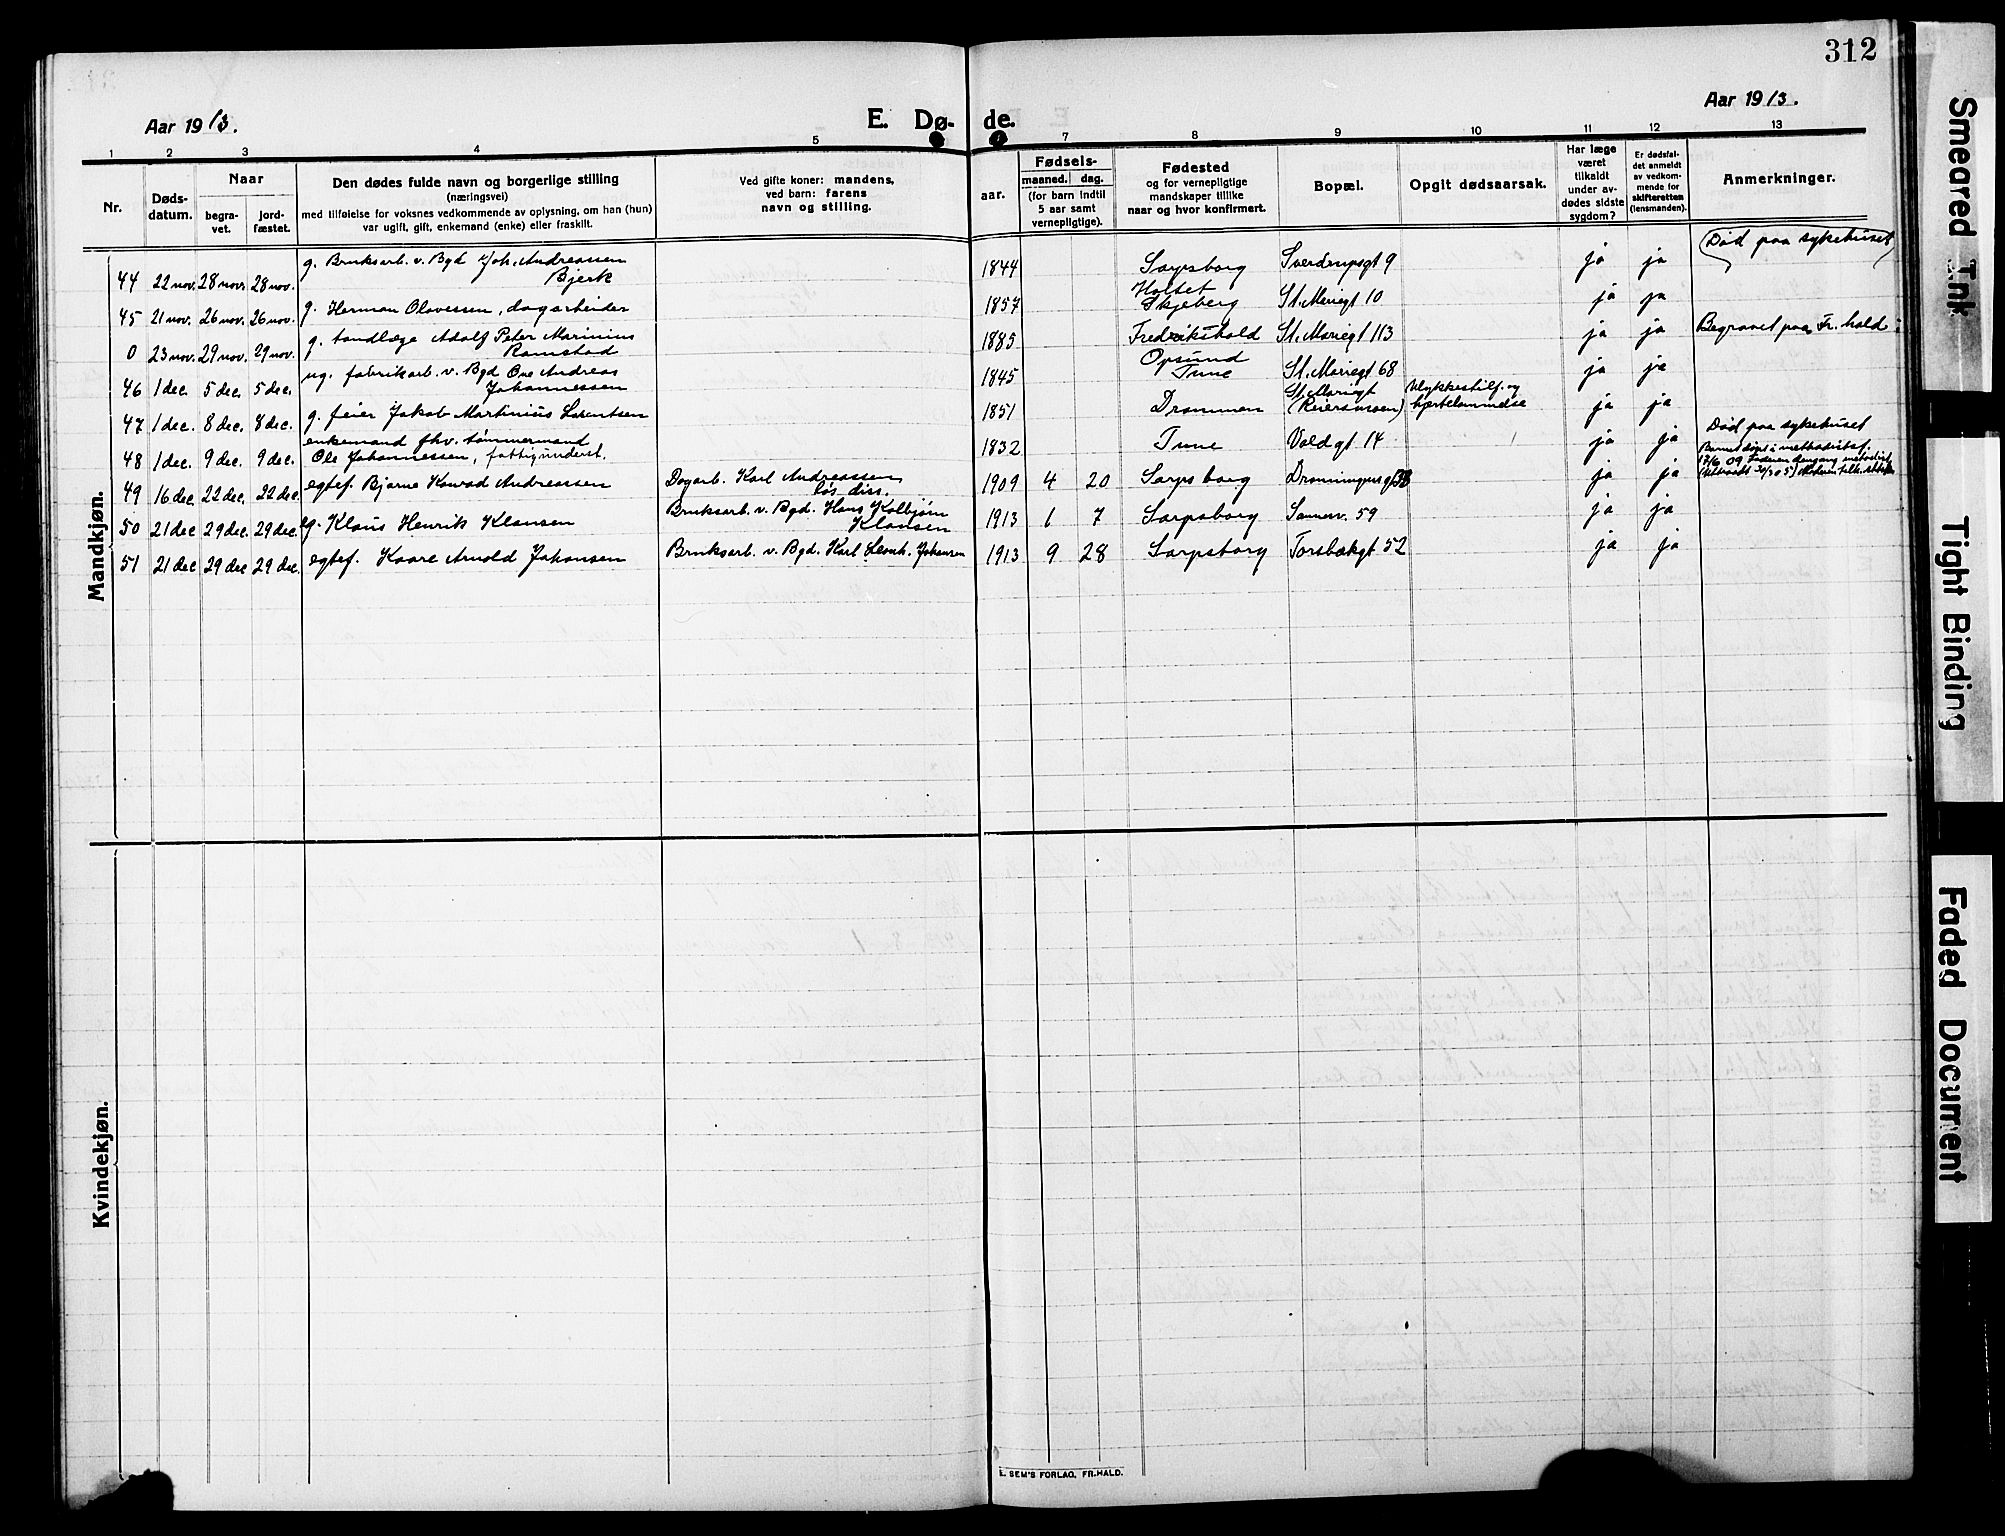 312
Aar 1913.
E. Dø-
de.
Aar 1913.
1 2 3 4 5 7 8 9 10 11 12 13
Nr.
Døds-
datum.
Naar
begra-
vet.
jord-
fæstet.
Den dødes fulde navn og borgerlige stilling
(næringsvei)
med tilføielse for voksnes vedkommende av oplysning, om han (hun)
var ugift, gift, enkemand (enke) eller fraskilt.
Ved gifte koner: mandens,
ved barn: farens
navn og stilling.
aar.
Fødsels-
maaned. dag.
(for barn indtil
5 aar samt
vernepligtige).
Fødested
og for vernepligtige
mandskaper tillike
naar og hvor konfirmert.
Bopæl.
Opgit dødsaarsak.
Har læge
været
tilkaldt
under av-
dødes sidste
sygdom?
Er dødsfal-
det anmeldt
av vedkom-
mende for
skifteretten
(lensmanden).
Anmerkninger.
Mandkjøn.
44 22 nov. 28 nov. 28 nov. g. Bruksarb. v. Bgd Joh. Andreassen
Bjerk
1844 Sarpsborg Sverdrupsgt 9 ja ja Død paa sykehuset
45 21 nov. 26 nov. 26 nov. g. Herman Olavessen, dagarbeider
1857 Holtet
Skjeberg St. Mariegt 10 ja ja
0 23 nov. 29 nov. 29 nov. g. tandlæge Adolf Peter Marinius
Ramstad
1885 Fredrikshald St. Mariegt 113 ja ja Begravet paa Fr.hald
46 1 dec. 5 dec. 5 dec. ug. fabrikarb. v. Bgd Ove Andreas
Johannessen
1845 Opsund
Tune St. Mariegt 68 ja ja
47 1 dec. 8 dec. 8 dec. g. feier Jakob Martinius Lorentsen
1851 Drammen St. Mariegt
(Reiersmoen) Ulykkestilf. og
hjertelammelse ja ja
48 1 dec. 9 dec. 9 dec. enkemand fhv. tømmermand
Ole Johannessen, fattigunderst.
1832 Tune Voldgt 14 ja ja Død paa sykehuset
49 16 dec. 22 dec. 22 dec. egtef. Bjarne Konrad Andreassen
Dagarb. Karl Andreassen
løs diss.
1909 4 20 Sarpsborg Dronningensgt 33 ja ja Barnet døpt i methodistsf.
13/6 09 Faderen dengang methodist
50 21 dec 29 dec. 29 dec. eg. Klaus Henrik Klausen
Bruksarb. v. Bgd. Hans Kolbjørn
Klausen
1913 1 7 Sarpsborg Sannesv. 59 ja ja
51 21 dec 29 dec 29 dec. egtef. Kaare Arnold Johansen
Bruksarb. v. Bgd. Karl Leonh. Johansen
1913 9 28 Sarpsborg Torsbækgt 52 ja ja
Kvindekjøn.
E. SEM'S FORLAG, FR.HALD.
Smeared Ink
Tight Binding
Faded Document